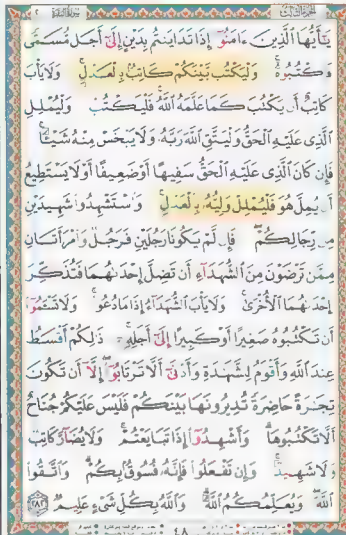 يَـٰٓأَيُّهَا ٱلَّذِينَ ءَامَنُوٓا۟ إِذَا تَدَايَنتُم بِدَيْنٍ إِلَىٰٓ أَجَلٍ مُّسَمًّى
فَٱكْتُبُوهُ ۚ وَلْيَكْتُب بَّيْنَكُمْ كَاتِبٌۢ بِٱلْعَدْلِ ۚ وَلَا يَأْبَ
كَاتِبٌ أَن يَكْتُبَ كَمَا عَلَّمَهُ ٱللَّهُ ۚ فَلْيَكْتُبْ وَلْيُمْلِلِ
ٱلَّذِى عَلَيْهِ ٱلْحَقُّ وَلْيَتَّقِ ٱللَّهَ رَبَّهُۥ وَلَا يَبْخَسْ مِنْهُ شَيْـًٔا ۚ
فَإِن كَانَ ٱلَّذِى عَلَيْهِ ٱلْحَقُّ سَفِيهًا أَوْ ضَعِيفًا أَوْ لَا يَسْتَطِيعُ
أَن يُمِلَّ هُوَ فَلْيُمْلِلْ وَلِيُّهُۥ بِٱلْعَدْلِ ۚ وَٱسْتَشْهِدُوا۟ شَهِيدَيْنِ
مِن رِّجَالِكُمْ ۖ فَإِن لَّمْ يَكُونَا رَجُلَيْنِ فَرَجُلٌ وَٱمْرَأَتَانِ
مِمَّن تَرْضَوْنَ مِنَ ٱلشُّهَدَآءِ أَن تَضِلَّ إِحْدَىٰهُمَا فَتُذَكِّرَ
إِحْدَىٰهُمَا ٱلْأُخْرَىٰ ۚ وَلَا يَأْبَ ٱلشُّهَدَآءُ إِذَا مَا دُعُوا۟ ۚ وَلَا تَسْـَٔمُوٓا۟
أَن تَكْتُبُوهُ صَغِيرًا أَوْ كَبِيرًا إِلَىٰٓ أَجَلِهِۦ ۚ ذَٰلِكُمْ أَقْسَطُ
عِندَ ٱللَّهِ وَأَقْوَمُ لِلشَّهَـٰدَةِ وَأَدْنَىٰٓ أَلَّا تَرْتَابُوٓا۟ ۖ إِلَّآ أَن تَكُونَ
تِجَـٰرَةً حَاضِرَةً تُدِيرُونَهَا بَيْنَكُمْ فَلَيْسَ عَلَيْكُمْ جُنَاحٌ
أَلَّا تَكْتُبُوهَا ۗ وَأَشْهِدُوٓا۟ إِذَا تَبَايَعْتُمْ ۚ وَلَا يُضَآرَّ كَاتِبٌ
وَلَا شَهِيدٌ ۚ وَإِن تَفْعَلُوا۟ فَإِنَّهُۥ فُسُوقٌۢ بِكُمْ ۗ وَٱتَّقُوا۟
ٱللَّهَ ۖ وَيُعَلِّمُكُمُ ٱللَّهُ ۗ وَٱللَّهُ بِكُلِّ شَىْءٍ عَلِيمٌ ٢٨٢
٤٨